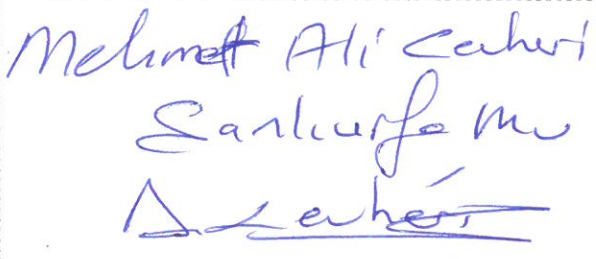 Mehmet Ali Cevheri
Şanlıurfa Mv